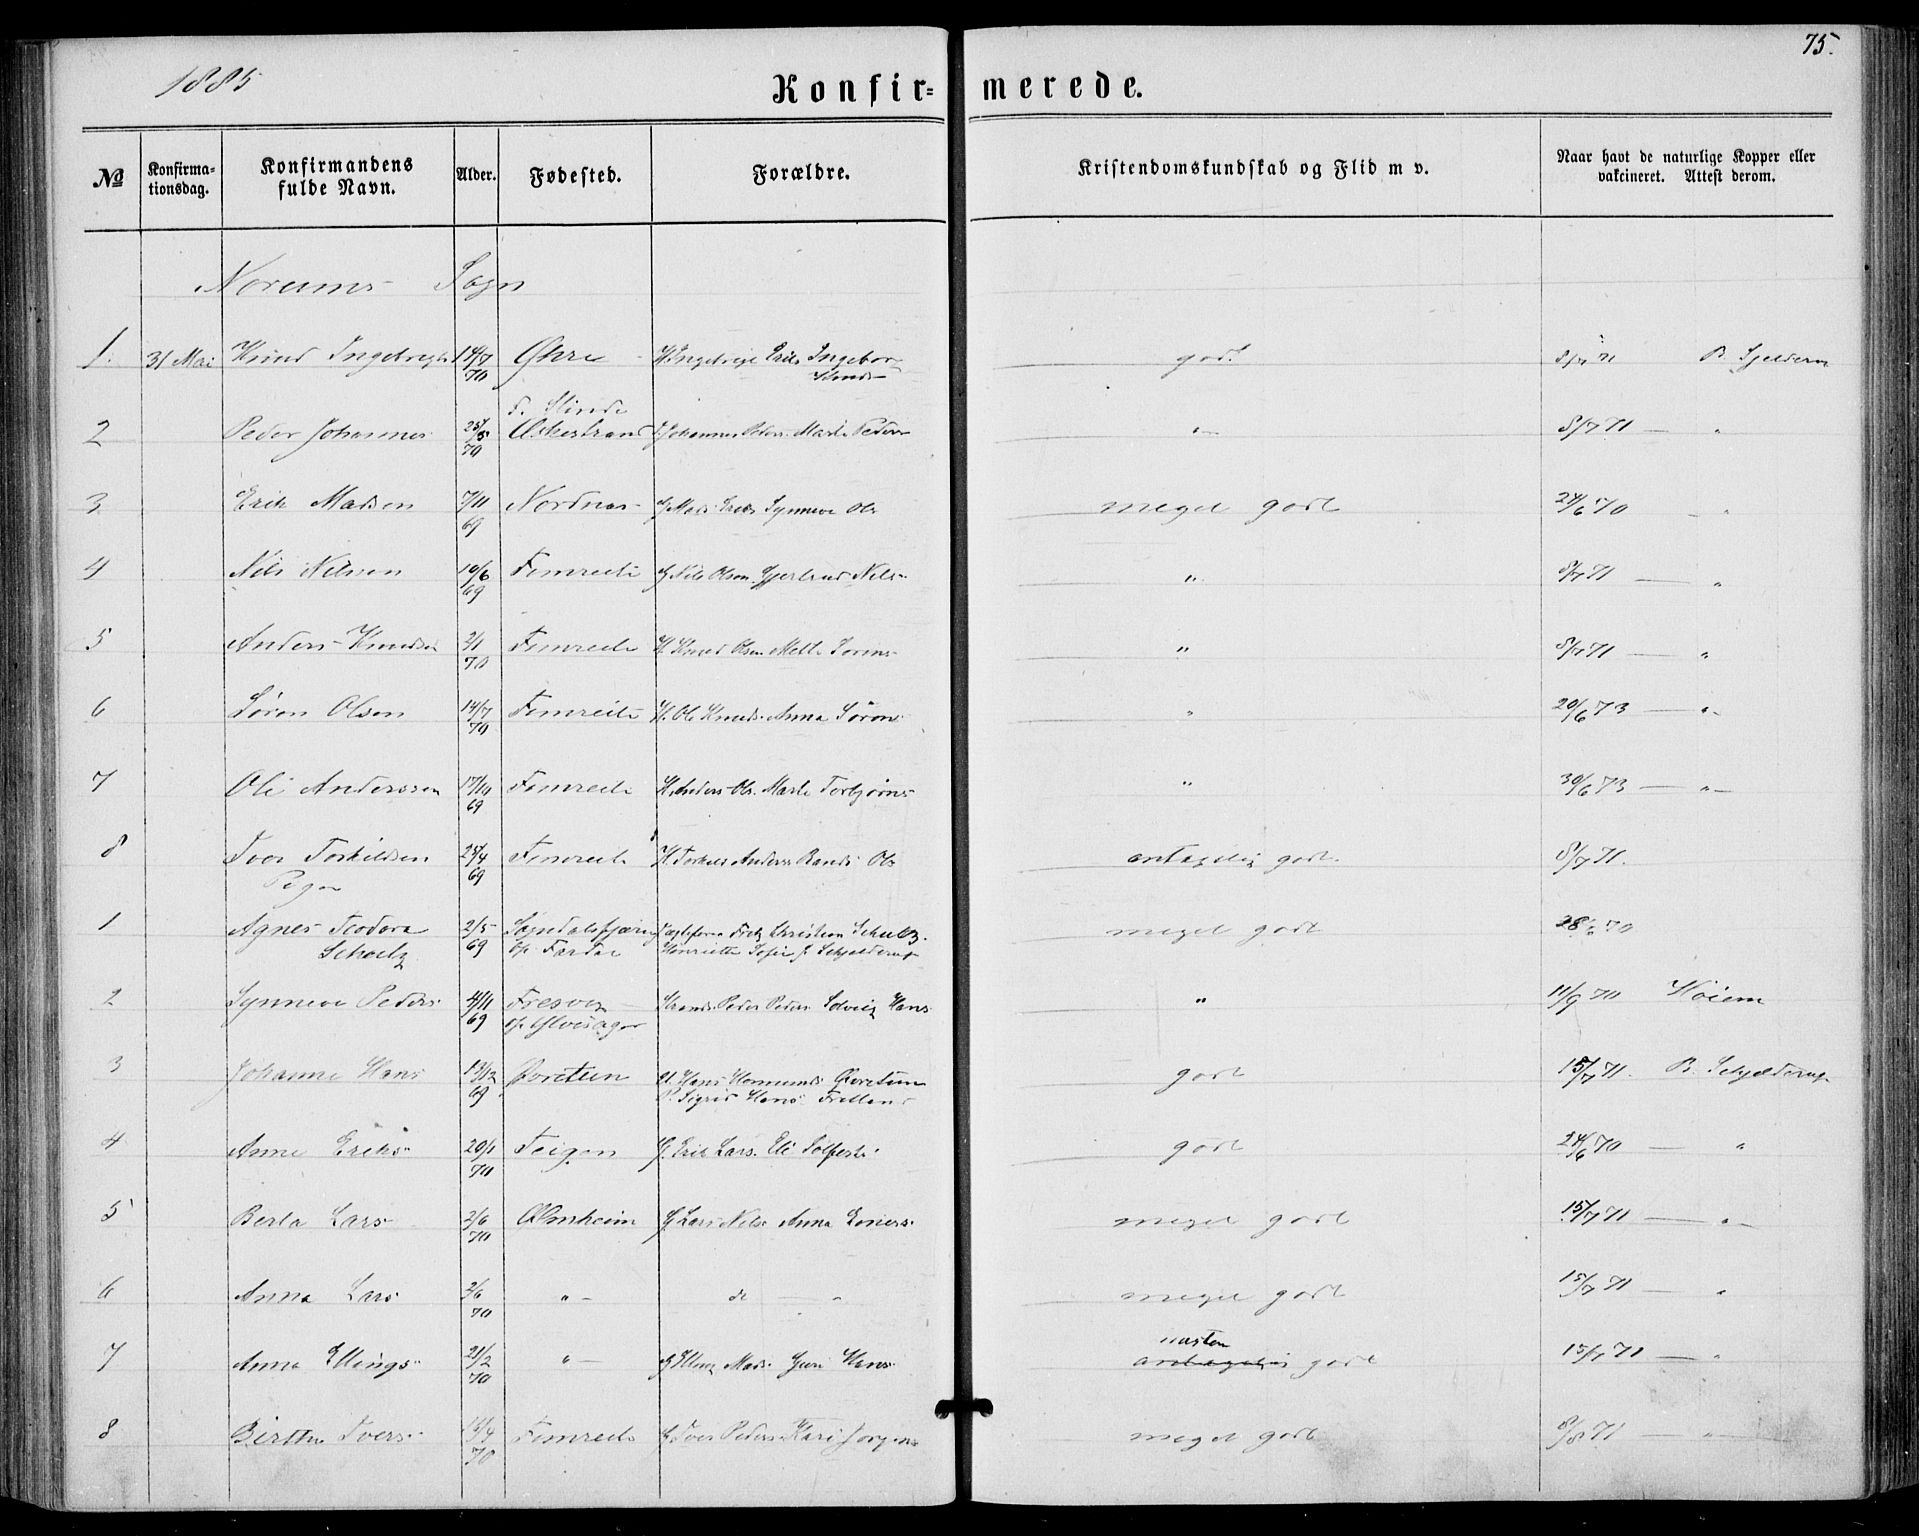 1885
75.
Konfir= merede.
№ Konfirma-tionsdag. Konfirmandens fulde Navn. Alder. Fødested. Forældre. Kristendomskundskab og Flid m v. Naar havt de naturlige Kopper eller vakcineret. Attest derom.
Norums Sogn
1. 31 Mai Knud Ingebrigts 14/7 70 Øhre H. Ingebrigt Eriks Ingebor Knuds godt 8/7 71
2 Peder Johannes 25/5 70 d. Slinde Askestrand Johannes Peders Marta Peders " 8/7 71 — "
3 Erik Madsen 7/11 69 Nordnæs G Mads Eriks Synneve Ols meget godt 24/6 70 "
4 Nils Nilsen 10/6 69 Fimreite G Nils Olsen Gjertrud Nils " 8/7 71 — "
5 Anders Knudsen 2/1 70 Fimreite H. Knud Olsen Mette Sørens " 8/7 71 — "
6 Søren Olsen 14/7 70 Fimreite H. Ole Knuds. Anna Sørens " 20/6 73 — "
7 Ole Anderssen 17/10 69 Fimreite H. Anders Ols. Marte Torbjørns " 30/6 73 — "
8 Iver Torkildsen 25/4 69 Fimreite H. Torkils Anders Randi Ols antagelig godt. 8/7 71.
Piger
1 Agnes Teodora Schultz 2/5 69 Sogndalsfjæren Op. Fardal Fritz Christian Schultz. Henriette Sofie f. Schjelderup meget godt 28/6 70
2 Synneve Peders 4/11 69 Fresvig op. Ylvisager Strands. Peder Peders Solveig Hans " 11/9 70 Høiem
3 Johanne Hans 13/12 69 Øvretun U. Hans Hermunds Øvretun P. Sigrid Hans Fretland godt 15/7 71. B. Schjelderup
4 Anne Eriks 20/1 70 Teigen G. Erik Lars. Eli Solfests godt 24/6 70 — "
5 Berta Lars 2/6 70 Ølmheim G. Lars Nils Anna Eners meget godt 15/7 71 — "
6 Anna Lars 2/6 70 " — do — " meget godt 15/7 71 — "
7 Anna Ellings 21/2 70 " — G Elling Mads Guri Hans næsten antagelig godt 15/7 71 — "
8 Birthe Ivers 14/4 70 Fimreite G Iver Peders Kari Jørgens meget godt 8/8 71 — "